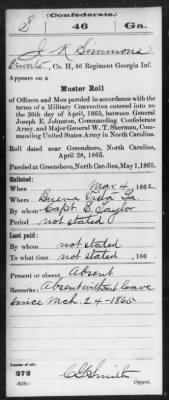 (Confederate.)
S 46 Ga.
J. K. Simmons
Private, Co. H, 46 Regiment Georgia Inf.
Appears on a
Muster Roll
of Officers and Men paroled in accordance with the
terms of a Military Convention entered into on
the 26th day of April, 1865, between General
Joseph E. Johnston, Commanding Confederate
Army, and Major General W. T. Sherman, Com-
manding United States Army in North Carolina.
Roll dated near Greensboro, North Carolina,
April 28, 1865.
Paroled at Greensboro, North Carolina, May 1, 1865.
Enlisted:
When Mar 4, 1862
Where Buena Vista Ga.
By whom Capt. E. Taylor
Period not stated
Last paid:
By whom not stated
To what time not stated, 186
Present or absent Absent
Remarks: Absent without leave
since Mch. 24-1865
Number of roll:
272
(639c)
C G Smith
Copyist.